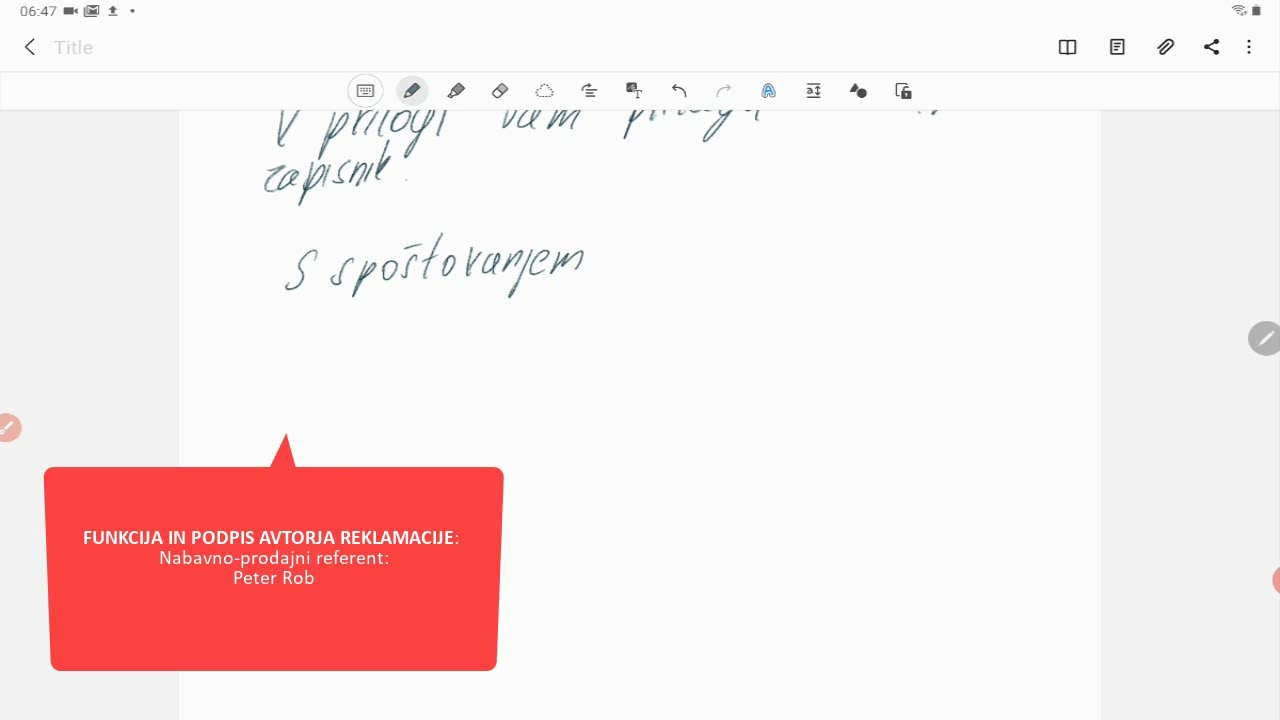 06:47
Title
V prilogi vam
zapisnik.
S spoštovanjem
FUNKCIJA IN PODPIS AVTORJA REKLAMACIJE:
Nabavno-prodajni referent:
Peter Rob